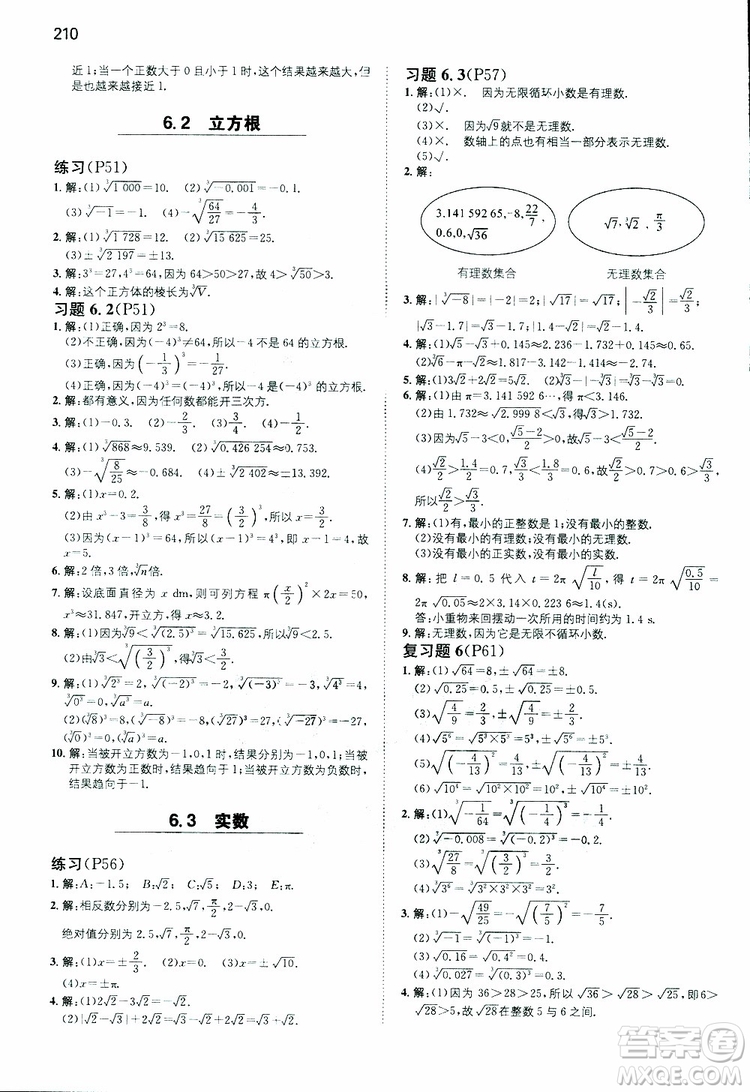 210
近1;当一个正数大于0且小于1时,这个结果越来越大,但
是也越来越接近1.
6.2 立方根
练习(P51)
1. 解:(1)∛1 000=10. (2)∛-0.001=-0.1.
(3)∛-1=-1. (4)-∛(64/27)=-4/3.
2. 解:(1)∛1 728=12. (2)∛15 625=25.
(3)±∛2 197=±13.
3. 解:3³=27,4³=64,因为64>50>27,故4>∛50>3.
4. 解:这个正方体的棱长为∛V.
习题6.2(P51)
1. 解:(1)正确,因为2³=8.
(2)不正确,因为(-4)³≠64,所以-4不是64的立方根.
(3)正确,因为(-1/3)³=-1/27.
(4)正确,因为(-4)³=-64,所以-64的立方根是-4.
2. 解:都有意义,因为任何数都能开三次方.
3. 解:(1)-0.3. (2)-2/3. (3)9/4. (4)-5.
4. 解:(1)∛868≈9.539. (2)∛0.426 254≈0.752 6.
(3)-∛(8/25)≈-0.684. (4)±∛2 402≈±13.392.
5. 解:(1)x=0.2.
(2)由x³-3=3/8,得x³=27/8=(3/2)³,所以x=3/2.
(3)因为(x-1)³=64,所以(x-1)³=4³,即x-1=4,故
x=5.
6. 解:2倍,3倍,∛n倍.
7. 解:设底面直径为x dm,则可列方程π(x/2)²×2x=50,
x³≈31.847,开立方,得x≈3.2.
8. 解:(1)∛9<∛(2.5)³=∛15.625,故∛9<2.5.
(2)由∛3<∛(3/2)³,得∛3<3/2.
9. 解:(1)∛2³=2,∛(-2)³=-2,∛(-3)³=-3,∛4³=4,
∛0³=0,∛a³=a.
(2)(∛8)³=8,(∛-8)³=-8,(∛27)³=27,(∛-27)³=-27,
(∛0)³=0,(∛a)³=a.
10. 解:当被开立方数为-1,0,1时,结果分别为-1,0,1;当被
开立方数为正数时,结果趋向于1;当被开立方数为负数时,
结果趋向于-1.
6.3 实数
练习(P56)
1. 解:A:-1.5, B:√2, C:√5, D:3, E:π.
2. 解:相反数分别为-2.5,-√7,π/2,√3-2,0.
绝对值分别为2.5,√7,π/2,2-√3,0.
3. 解:(1)x=±2/3. (2)x=0. (3)x=±√10.
(4)x=±π.
4. 解:(1)2√2-3√2=(2-3)√2=-√2.
(2)|√2-√3|+2√2=√3-√2+2√2=√3+√2.
习题6.3(P57)
1. 解:(1)×. 因为无限循环小数是有理数.
(2)√.
(3)×. 因为√9就不是无理数.
(4)×. 数轴上的点也有相当一部分表示无理数.
(5)√.
2. 解:
3.141 592 65,-8,22/7,
0.6,0,√36
√7,∛2,π/3
有理数集合 无理数集合
3. 解:|∛-8|=|-2|=2;|√17|=√17;|-√2/3|=√2/3;
|√3-1.7|=√3-1.7;|1.4-√2|=√2-1.4.
4. 解:(1)√5-√3+0.145≈2.236-1.732+0.145≈0.65.
(2)∛6-π-√2≈1.817-3.142-1.414≈-2.74.
5. 解:(1)3√2+2√2=5√2. (2)√3.
6. 解:(1)因为π=3.141 592 6…,所以π<3.146.
(2)由1.732≈√2.999 8<√3,得√3>1.732.
(3)由√5-3<0,√5-2/2>0,得√5-3<√5-2/2.
(4)√2/2≈√1.8/3<√1.8/3=√3/3,即√2/2>√3/3,
所以√2/2>√3/3.
7. 解:(1)有,最小的正整数是1;没有最小的整数.
(2)没有最小的有理数;没有最小的无理数.
(3)没有最小的正实数;没有最小的实数.
8. 解:把l=0.5代入t=2π√(l/10),得t=2π√(0.5/10)=
2π√0.05≈2×3.14×0.223 6≈1.4(s).
答:小重物来回摆动一次所用的时间约为1.4 s.
9. 解:无理数,因为它是无限不循环小数.
复习题6(P61)
1. 解:(1)√64=8. ±√64=±8.
(2)√0.25=0.5. ±√0.25=±0.5.
(3)√(4/9)=2/3. ±√(4/9)=±2/3.
(4)√5⁶=√5³×5³=5³. ±√5⁶=±5³.
(5)√(-4/13)²=4/13. ±√(-4/13)²=±4/13.
(6)√10⁴=√10²×10²=10². ±√10⁴=±10².
2. 解:(1)∛(-1/64)=∛(-1/4)³=-1/4.
(2)∛-0.008=∛(-0.2)³=-0.2.
(3)∛(27/8)=∛(3/2)³=3/2.
(4)∛3⁶=∛3²×3²×3²=3²=9.
3. 解:(1)-√(49/25)=-√(7/5)²=-7/5.
(2)∛-1=∛(-1)³=-1.
(3)±√144=±√12²=±12.
(4)∛0.027=∛(0.3)³=0.3.
4. 解:(1)因为36>30>25,所以√36>√30>√25,即6>
√30>5,故√30在整数5与6之间.
答案卷
MXQE.COM